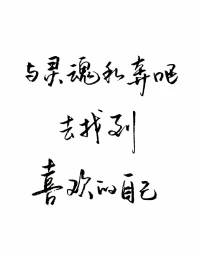 与灵魂私奔吧
去找到
喜欢的自己